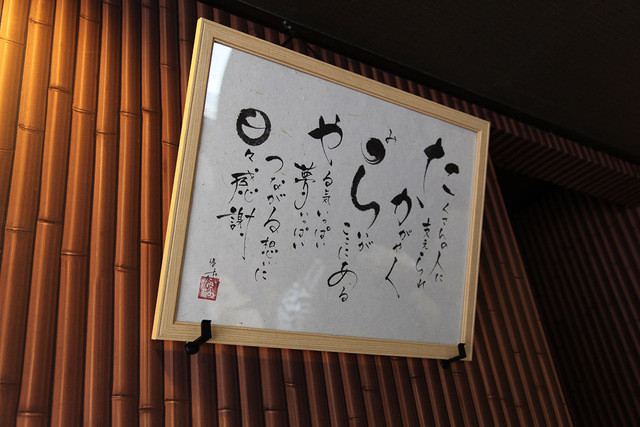 たくさんの人に
支えられ
かがやく
みらいが
ここにある
やる気いっぱい
夢いっぱい
つながる想いに
日々感謝